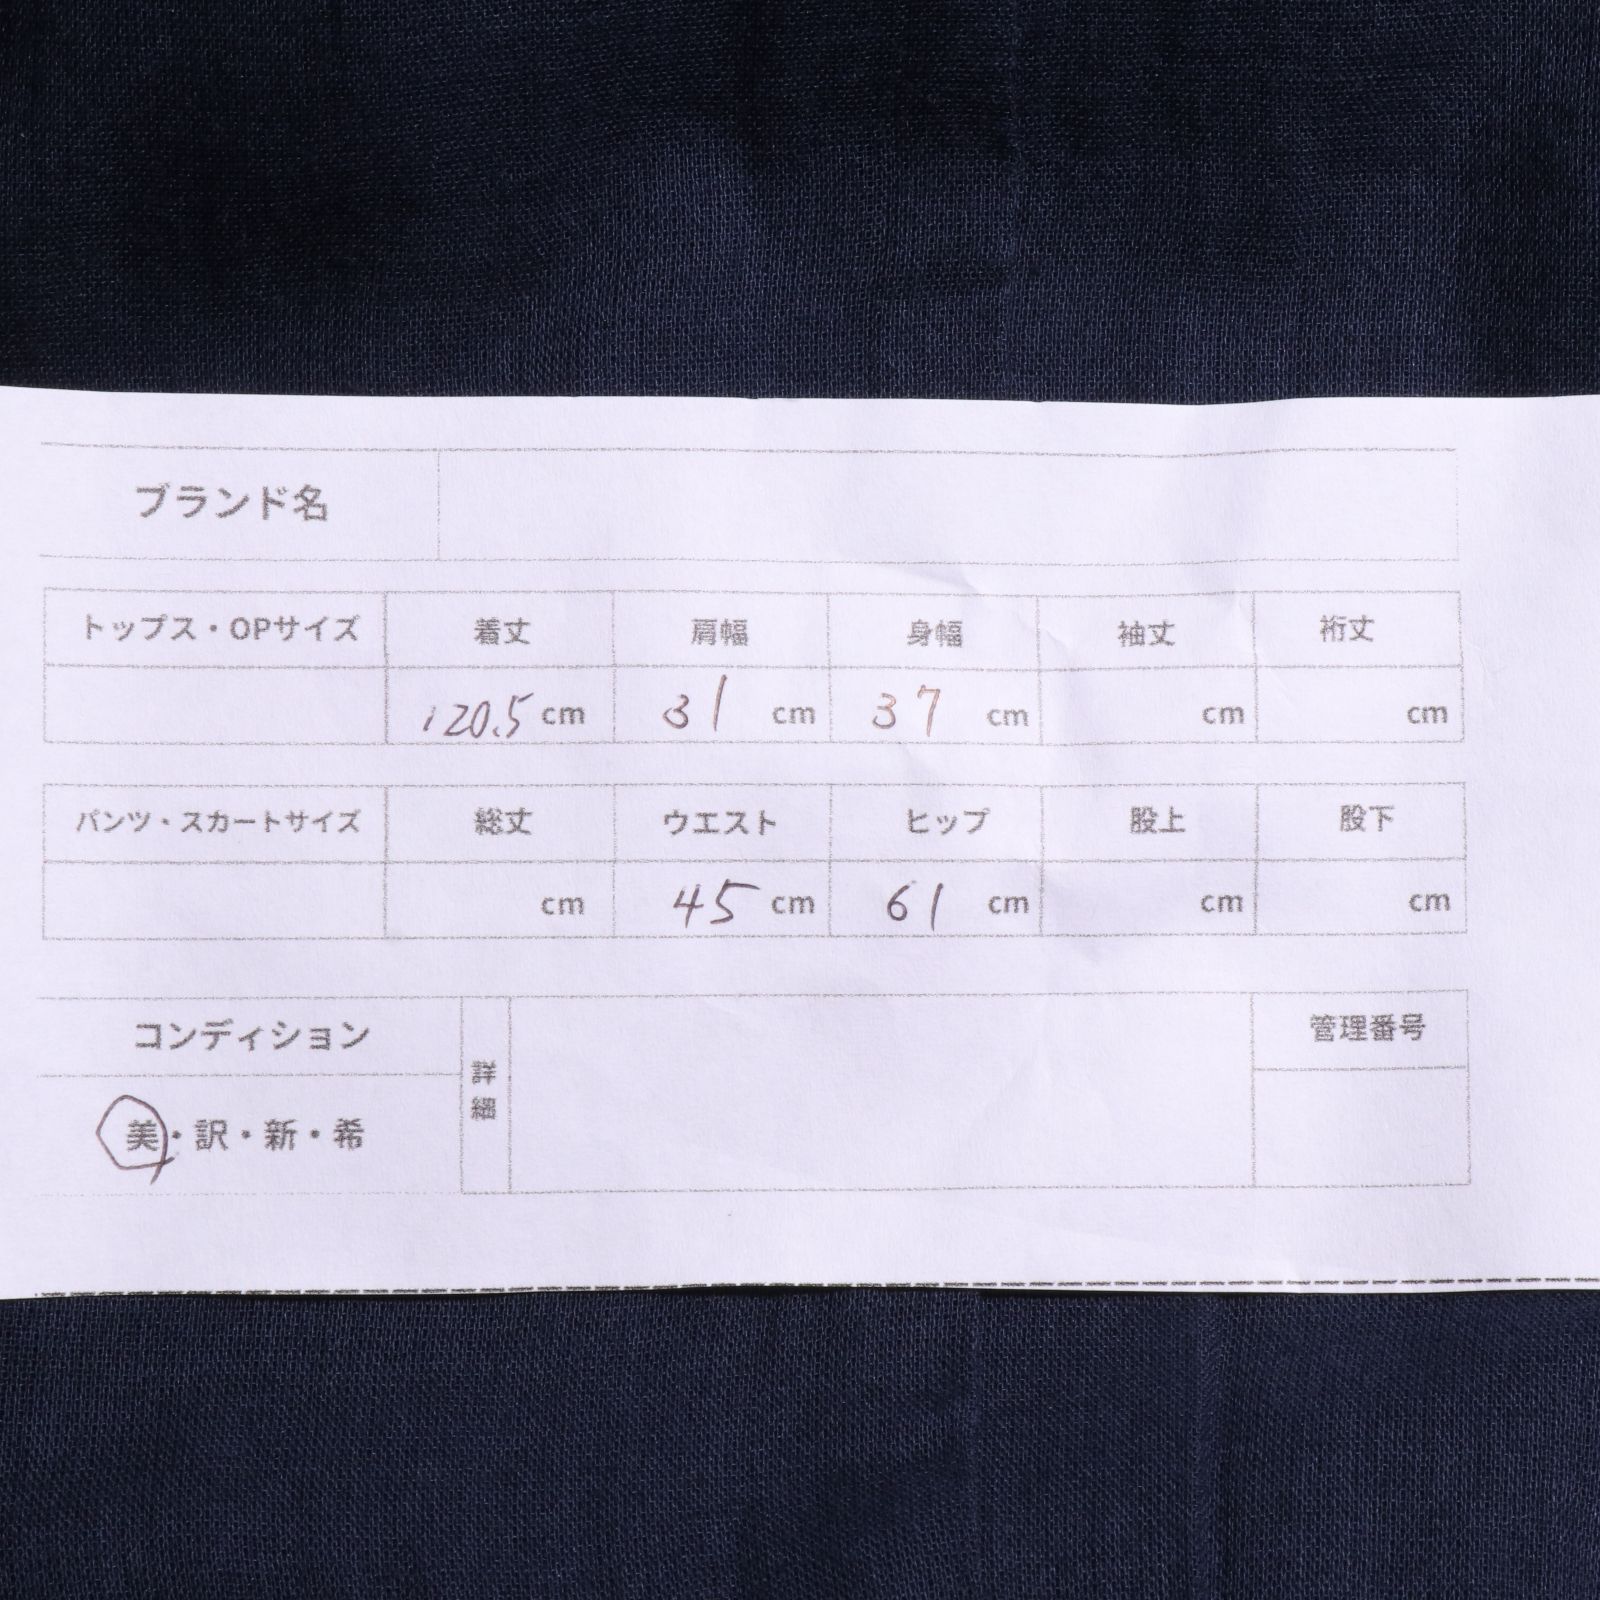 ブランド名
トップス・OPサイズ 着丈 肩幅 身幅 袖丈 裄丈
120.5 cm 31 cm 37 cm cm cm
パンツ・スカートサイズ 総丈 ウエスト ヒップ 股上 股下
cm 45 cm 61 cm cm cm
コンディション 詳細 管理番号
美・訳・新・希